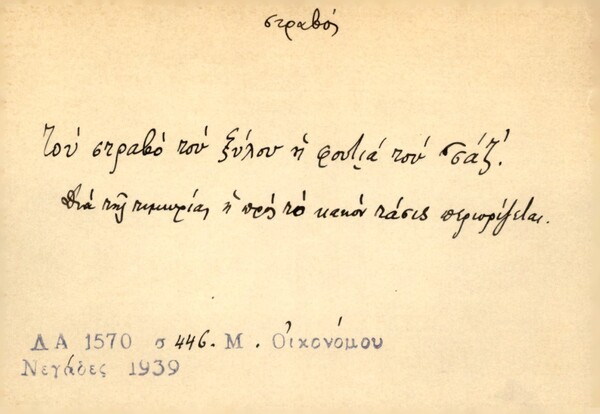 στραβός
Τού στραβό τού ξύλου ἡ φουτιά τού σιάζ'.
Διά τῆς τιμωρίας ἡ πρὸς τὸ κακόν τάσις περιορίζεται.
ΔΑ 1570 σ 446. Μ. Οἰκονόμου
Νεγάδες 1939